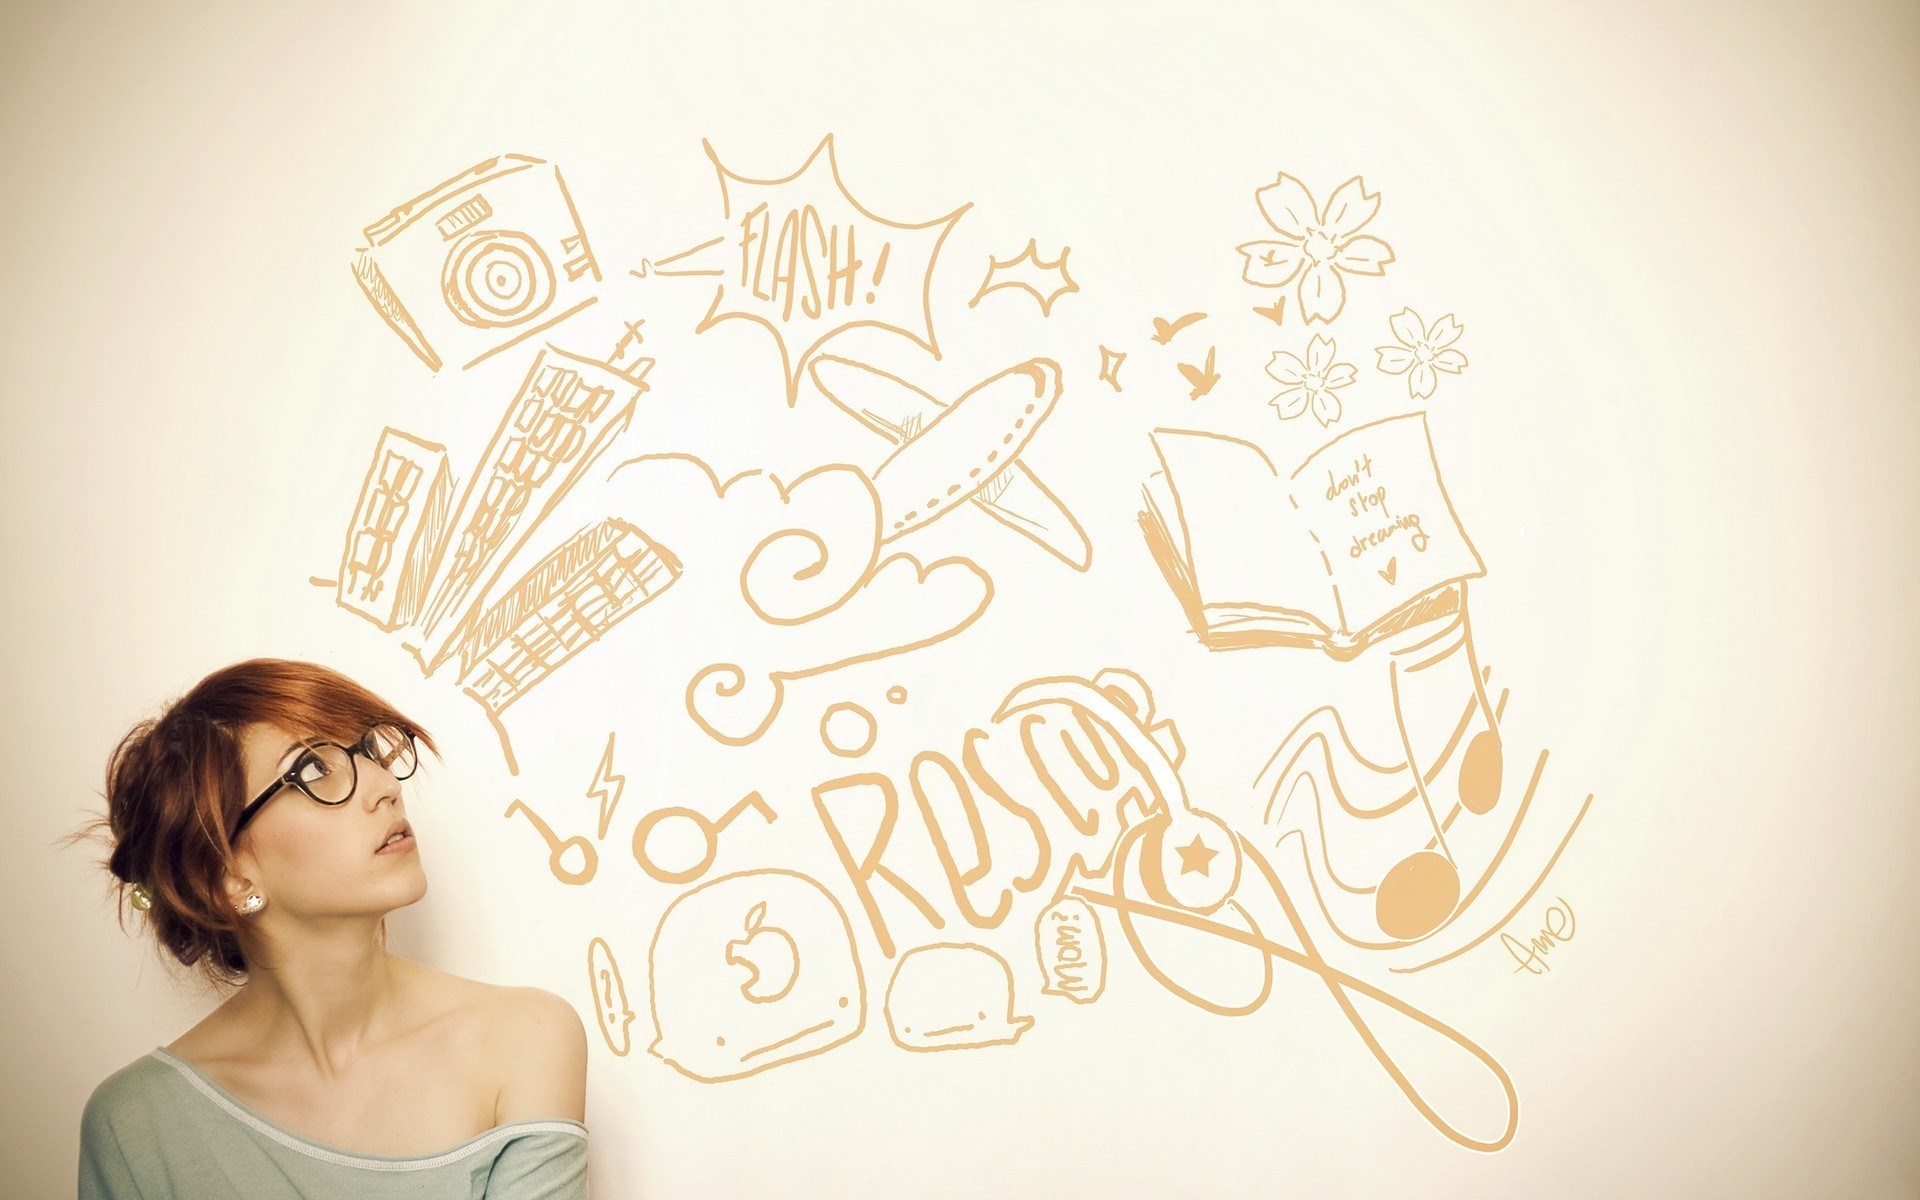 FLASH!
don't
stop
dreaming
Rescu
wow!
Ame